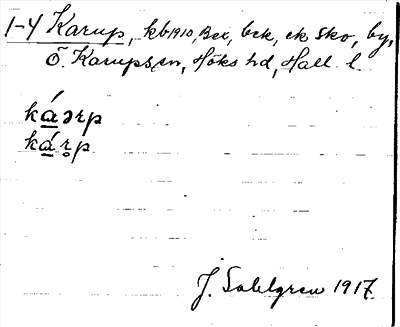 1-4 Karup, kb 1910, Bex, bck, ek sko, by,
Ö. Karups sn, Höks hd, Hall. l.
káərp
kár̥p
J. Sahlgren 1917.